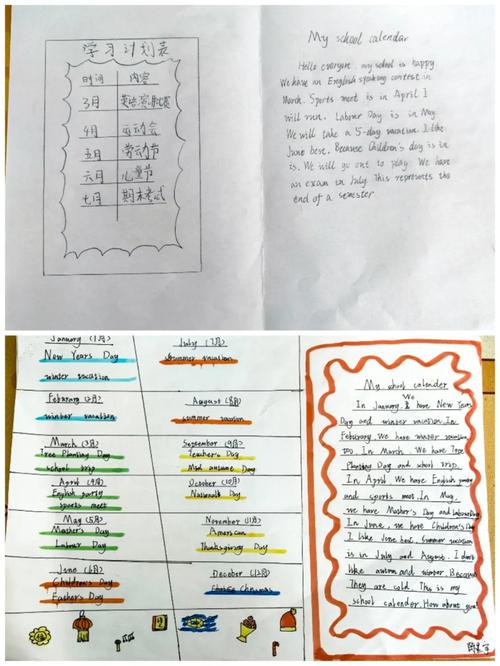 学习计划表
时间 内容
3月 英语演讲比赛
4月 运动会
五月 劳动节
六月 儿童节
七月 期末考试
My school calendar
Hello everyone, my school is happy
We have an English speaking contest in
March. Sports meet is in April I
will run. Labour Day is in May
We will take a 5-day vacation I like
June best. Because Children's day is in
is. We will go out to play. We have
an exam in July This represents the
end of a semester
January (1月)
New Years Day
winter vacation
February (2月)
winter vacation
March (3月)
Tree Planting Day
school trip
April (4月)
English party
sports meet
May (5月)
Mother's Day
Labour Day
June (6月)
Children's Day
Father's Day
July (7月)
summer vacation
August (8月)
summer vacation
September (9月)
Teacher's Day
Mid autumn Day
October (10月)
National's Day
November (11月)
American
Thanksgiving Day
Decober (12月)
Christmas
My school calender
We
In January, have New Years
Day and winter vacation. In
February. We have winter vacation
too. In March. We have Tree
Planting Day and school trip.
In April. We have English party
and sports meet. In May,
we have Mother's Day and Labour Day
In June, we have Children's Day
I like June best. Summer vacation
is in July and August. I don't
like autumn and winter. Because
They are cold. This is my
school calender. How about you?